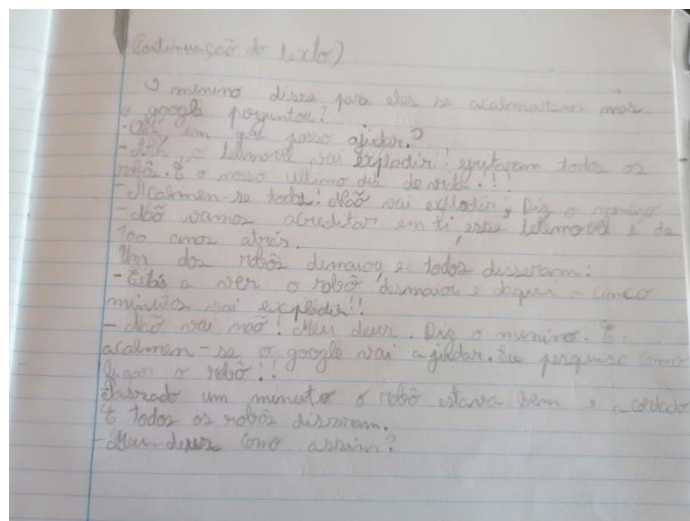 Continuação do texto)
O menino disse para eles se acalmarem mas
o google perguntou:
-Olá em que posso ajudar?
-Ahh, o telemovel vai explodir! gritaram todos os
robôs. É o nosso ultimo dia de vida.!!
-Acalmen-se todos! Não vai explodir; Diz o menino
-Não vamos acreditar em ti, esse telemovel é de
100 anos atrás.
Um dos robôs demaiou e todos disseram:
-Estás a ver o robô desmaiou e daqui a cinco
minutos vai explodir!!
-Não vai não! Meu deus. Diz o menino. E
acalmen-se o google vai ajudar. Eu pesquiso como
ligar o robô!!
Passado um minuto o robô estava bem e acordado
E todos os robôs disseram.
-Meu deus como assim?